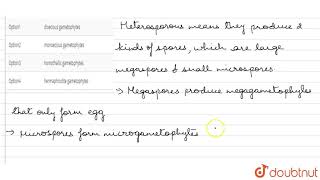 Option1 dioecious gametophytes
Option2 monoecious gametophytes
Option3 homothallic gametophytes
Option4 hermaphrodite gametophytes
Heterosporous means they produce 2
kinds of spores, which are large
megaspores & small microspores
→ Megaspores produce megagametophytes
that only form egg
→ Microspores form microgametophytes
doubtnut